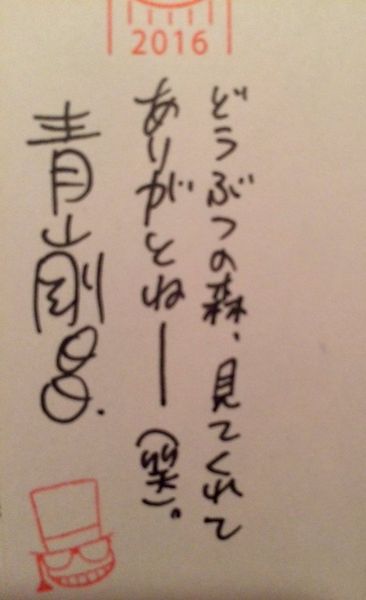 2016
どうぶつの森、見てくれて
ありがとねー(笑)。
青山剛昌.